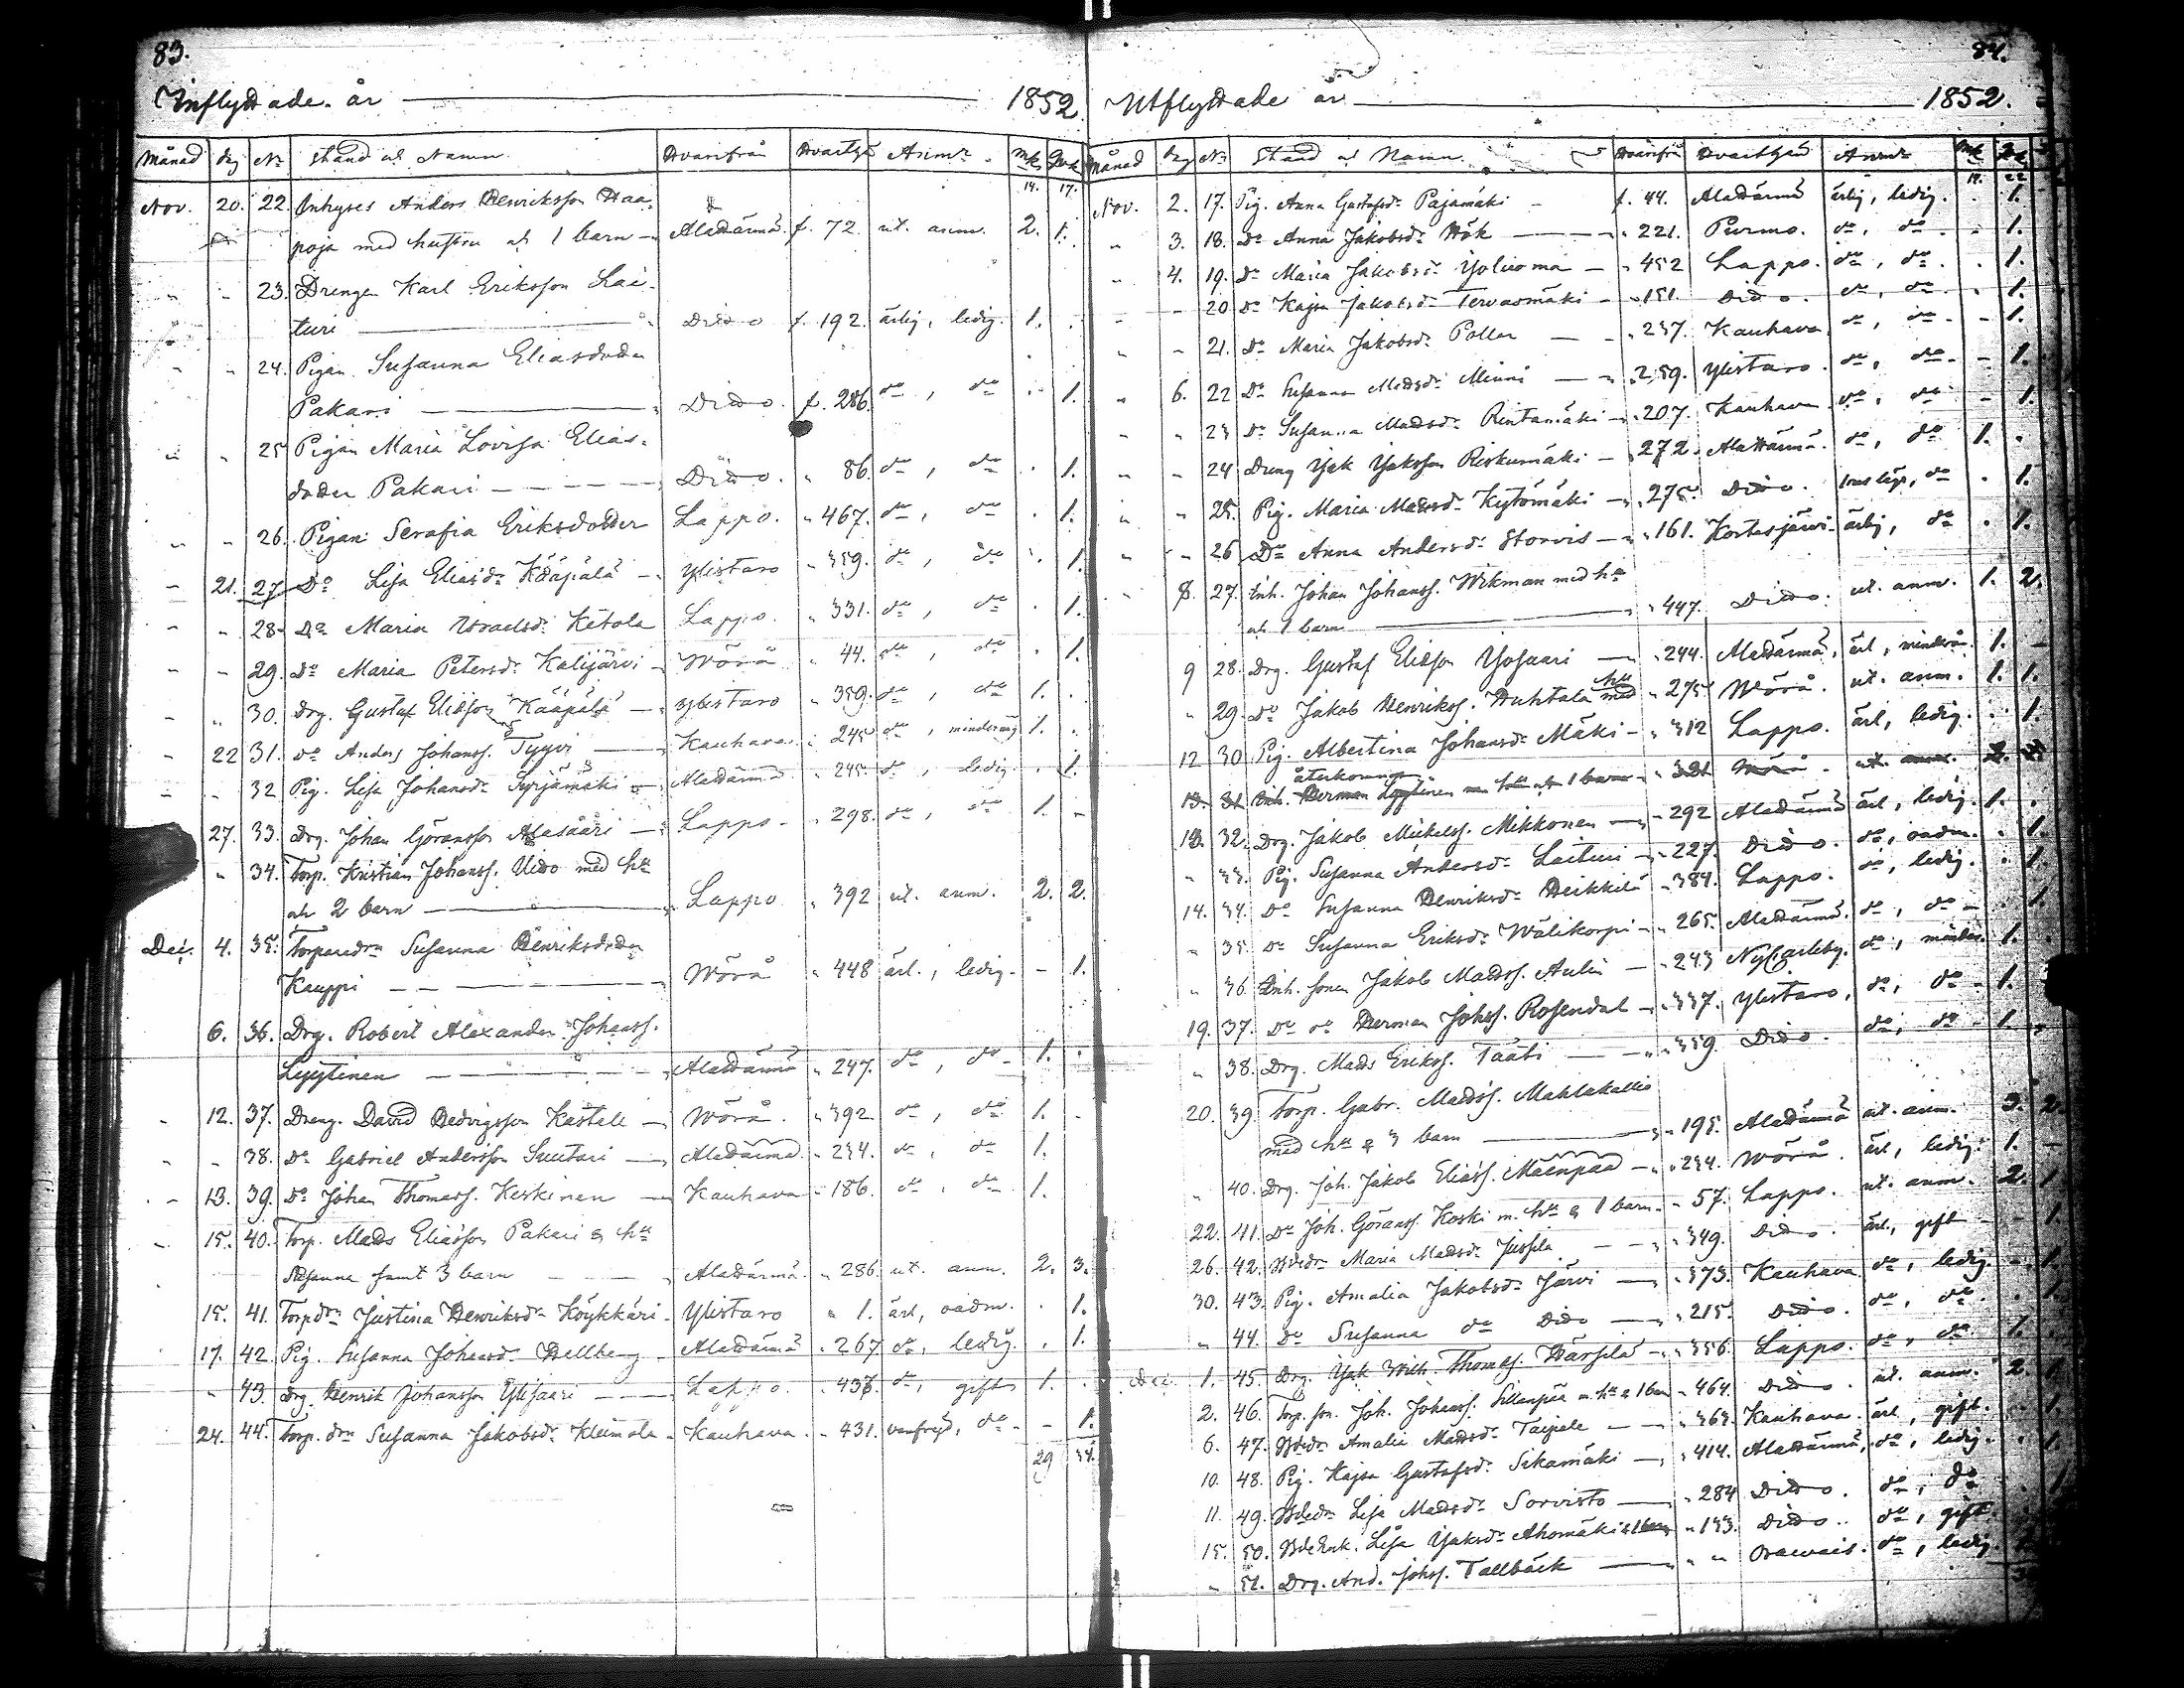 83.
Inflyttade år 1852
Månad dag No Stånd och Namn Hvarifrån Hvartill Anmr. Mk Qvk
14. 17.
Nov. 20. 22. Inhyses Anders Henriksson Haa-
poja med hustru och 1 barn Alahärmä f. 72. ut. anm. 2. 1.
" " 23. Drengen Karl Eriksson Lai-
turi Dito f. 192. ärlig, ledig. 1. .
" " 24. Pigan Susanna Eliasdotter
Pakari Dito. f. 286. do, do . 1.
" " 25 Pigan Maria Lovisa Elias-
dotter Pakari Dito. " 86. do, do . 1.
" " 26. Pigan Serafia Eriksdotter Lappo. " 467. do, do . 1.
" 21. 27 Do Lisa Eliasdr Kääpälä Ylistaro " 359. do, do . 1.
" " 28. Do Maria Israelsdr Ketola Lappo. " 331. do, do . 1.
" " 29. Do Maria Petersdr Kalijärvi Wörå " 44. do, do . 1.
" " 30. Drg. Gustaf Eliasson Kääpälä Ylistaro " 359. do, do 1. .
" 22 31. do Anders Johanss. Tyyri Kauhava. " 245 do, minderårig 1. .
" " 32 Pig. Lisa Johansdr Syrjämäki Alahärmä " 245. do, ledig. . 1.
27. 33. Drg. Johan Göransson Alasaari Lappo " 298. do, do 1. -
" 34. Torp. Kristian Johanss. Uito med hu
och 2 barn Lappo " 392 ut. anm. 2. 2.
Dec. 4. 35. Torparedr Susanna Henriksdotter
Kauppi Wörå " 448 ärl., ledig. - 1.
6. 36. Drg. Robert Alexander Johanss.
Lyytinen Alahärmä " 247. do, do 1. .
" 12. 37. Dreng. David Hedvigsson Kastell Wörå. " 392. do, do 1. .
" " 38. Do Gabriel Andersson Suutari Alahärmä " 234. do, do 1.
" 13. 39. Do Johan Thomass. Keskinen Kauhava " 186. do, do 1.
" 15. 40. Torp. Mads Eliasson Pakari & hu
Susanna samt 3 barn Alahärmä. " 286. ut. anm. 2. 3.
15. 41. Torpdr Justina Henriksdr Köykkäri Ylistaro " 1. ärl, oadm. . 1.
17. 42. Pig. Susanna Johansdr Hellberg Alahärmä " 267 do, ledig. . 1.
" 43. Drg. Henrik Johansson Ylisaari Lappo. " 437. do, gift 1. .
24. 44. Torp. dr Susanna Jakobsdr Kleimola Kauhava. " 431. vanfrejd, do - 1.
29 34.
84.
Utflyttade år 1852.
Månad Dag No Stånd och Namn. Hvarifrån Hvarthän Anmr Mk Qvk
19. 22
Nov. 2. 17. Pig. Anna Gustafsdr Pajamäki f. 44. Alahärmä ärlig, ledig. . 1.
" 3. 18. Do Anna Jakobsdr Hök " 221. Purmo. do, do . 1.
" 4. 19. Do Maria Jakobsdr Yliluoma " 452 Lappo. do, do . 1.
" " 20 Do Kajsa Jakobsdr Tervasmäki " 151. Dito. do, do . 1.
" " 21. Do Maria Jakobsdr Pollar " 237. Kauhava. do, do - 1.
" 6. 22 Do Susanna Madsdr Minni " 259. Ylistaro. do, do - 1.
" " 23 Do Susanna Madsdr Rintamäki " 207. Kauhava do, do - 1.
" " 24 Dreng Isak Isaksson Riskumäki " 272. Alahärmä. do, do 1. .
" " 25. Pig. Maria Madsdr Kytömäki " 275. Dito. do . 1.
" " 26 Do Anna Andersdr Storvis " 161. Kortesjärvi. ärlig, do . 1.
" 8. 27. Inh. Johan Johanss. Wikman med hu
och 1 barn " 447. Dito. ut. anm. 1. 2.
9 28. Drg. Gustaf Eliasson Ylisaari " 244. Alahärmä, ärl, minderår. 1. -
" 29. Do Jakob Henrikss. Huhtala med hu " 275 Wörå. ut. anm. 1. 1.
12 30 Pig. Albertina Johansdr Mäki " 312 Lappo. ärl, ledig. . 1.
återkommen.
13. 31 Inh. Herman Lyytinen med hu och 1 barn " 321 Wörå. ut. anm. 2.
13. 32. Drg. Jakob Mickelss. Mikkonen " 292 Alahärmä ärl, ledig. 1. .
" 33. Pig. Susanna Andersdr Laituri " 227. Dito. do, oadm. . 1.
14. 34. Do Susanna Henriksdr Heikkilä " 384. Lappo. do, ledig. . 1.
" 35. Do Susanna Eriksdr Wälikorpi " 265. Alahärmä. do, do - . 1.
" 36. Inh. sonen Jakob Madss. Aulin " 243 Nykarleby. do, minder. 1. .
19. 37. Do do Herman Johss. Rosendal " 337. Ylistaro, do, do 1.
" 38. Drg. Mads Erikss. Tääli " 359 Dito. do, do 1.
20. 39. Torp. Gabr. Madss. Mahlakallio
med hu & 3 barn " 195. Alahärmä ut. anm. 3. 2.
" 40. Drg. Joh. Jakob Eliass. Mäenpää " 234. Wörå. ärl, ledig. 1. -
22. 41. Do Joh. Göranss. Koski m. hu & 1 barn. " 57. Lappo. ut. anm. 2. 1
26. 42. Maria Madsdr Jussila " 349. Dito. ärl, gift - 1.
30. 43. Pig. Amalia Jakobsdr Järvi " 373. Kauhava do, ledig. - 1.
" 44. Do Susanna do Dito " 215. Dito. do, do . 1.
Dec. 1. 45. Drg. Isak Wilh. Thomass. Härsilä " 356. Lappo. do, do 1. .
2. 46. Torp. son. Joh. Johanss. Sillanpää m. hu & 1 barn " 464. Dito. ut. anm. 2. 1
6. 47. Amalia Madsdr Taipale " 363. Kauhava. ärl, gift. . 1.
10. 48. Pig. Kajsa Gustafsdr Sikamäki " 414. Alahärmä, do, ledig. . 1.
11. 49. Lisa Madsdr Sorvisto " 284 Dito. do, do . 1
15. 50. Lisa Isaksdr Ahomäki & 1 barn " 133. Dito. do, gift.
" 51. Drg. And. Johss. Tallbäck " " Orawais. do, ledig.